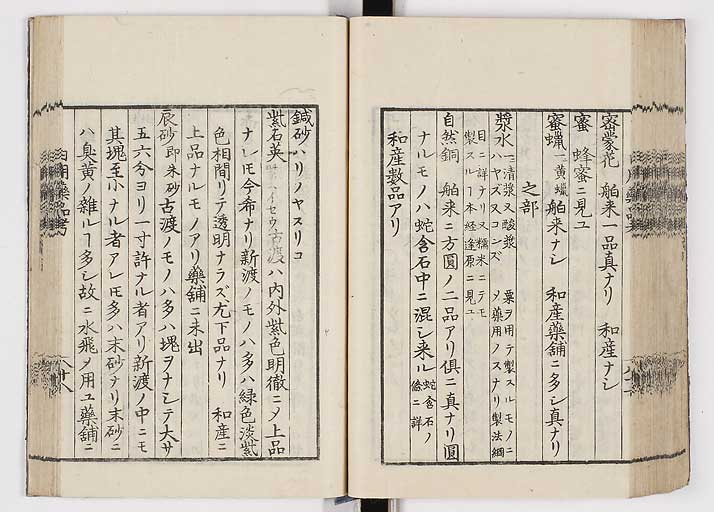 密蒙花 舶来一品真ナリ 和産ナシ
蜜 蜂蜜ニ見ユ
蜜蠟 一黄蠟 舶来ナシ 和産藥舗ニ多シ真ナリ
之部
漿水 一清漿又酸漿 粟ヲ用テ製スルモノニ
ハヤズヌコンズ メ藥用ノスナリ製法綱
目ニ詳ナリ又糯米ニテモ
製スルヿ本経逢原ニ見ユ
自然銅 舶来ニ方圓ノ二品アリ俱ニ真ナリ圓
ナルモノハ蛇含石中ニ混シ来ル 蛇含石ノ
條ニ詳
和産数品アリ
鍼砂 ハリノヤスリコ
紫石英 古渡ハ内外紫色明徹ニメ上品
ナレ𪜈今希ナリ新渡ノモノハ多ハ緑色淡紫
色相間リテ透明ナラズ尤下品ナリ 和産ニ
上品ナルモノアリ藥舗ニ未出
辰砂 即朱砂 古渡ノモノハ多ハ塊ヲナシテ大サ
五六分ヨリ一寸許ナル者アリ新渡ノ中ニモ
其塊至小ナル者アレ𪜈多ハ末砂ナリ末砂ニ
ハ臭黄ノ雑ルヿ多シ故ニ水飛メ用ユ藥舗ニ